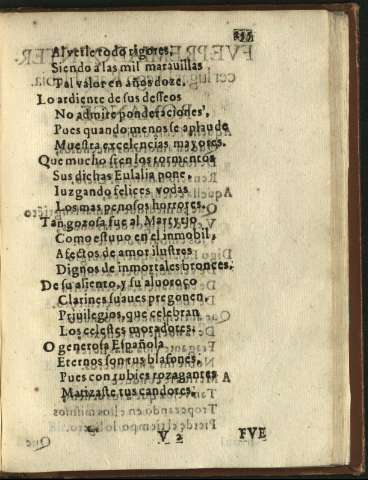 Al verle todo rigores,
Siendo a las mil marauillas
Tal valor en años doze.
Lo ardiente de sus desseos
No admire ponderaciones,
Pues quando menos se aplaude
Muestra excelencias mayores.
Que mucho si en los tormentos
Sus dichas Eulalia pone,
Iuzgando felices vodas
Los mas penosos horrores.
Tan gozosa fue al Martyrio
Como estuuo en el inmobil,
Afectos de amor ilustres
Dignos de inmortales bronces.
De su aliento, y su aluoroço
Clarines suaues pregonen,
Priuilegios, que celebran
Los celestes moradores.
O generosa Española
Eternos son tus blasones,
Pues con rubies rozagantes
Matizaste tus candores.
V 2 FVE